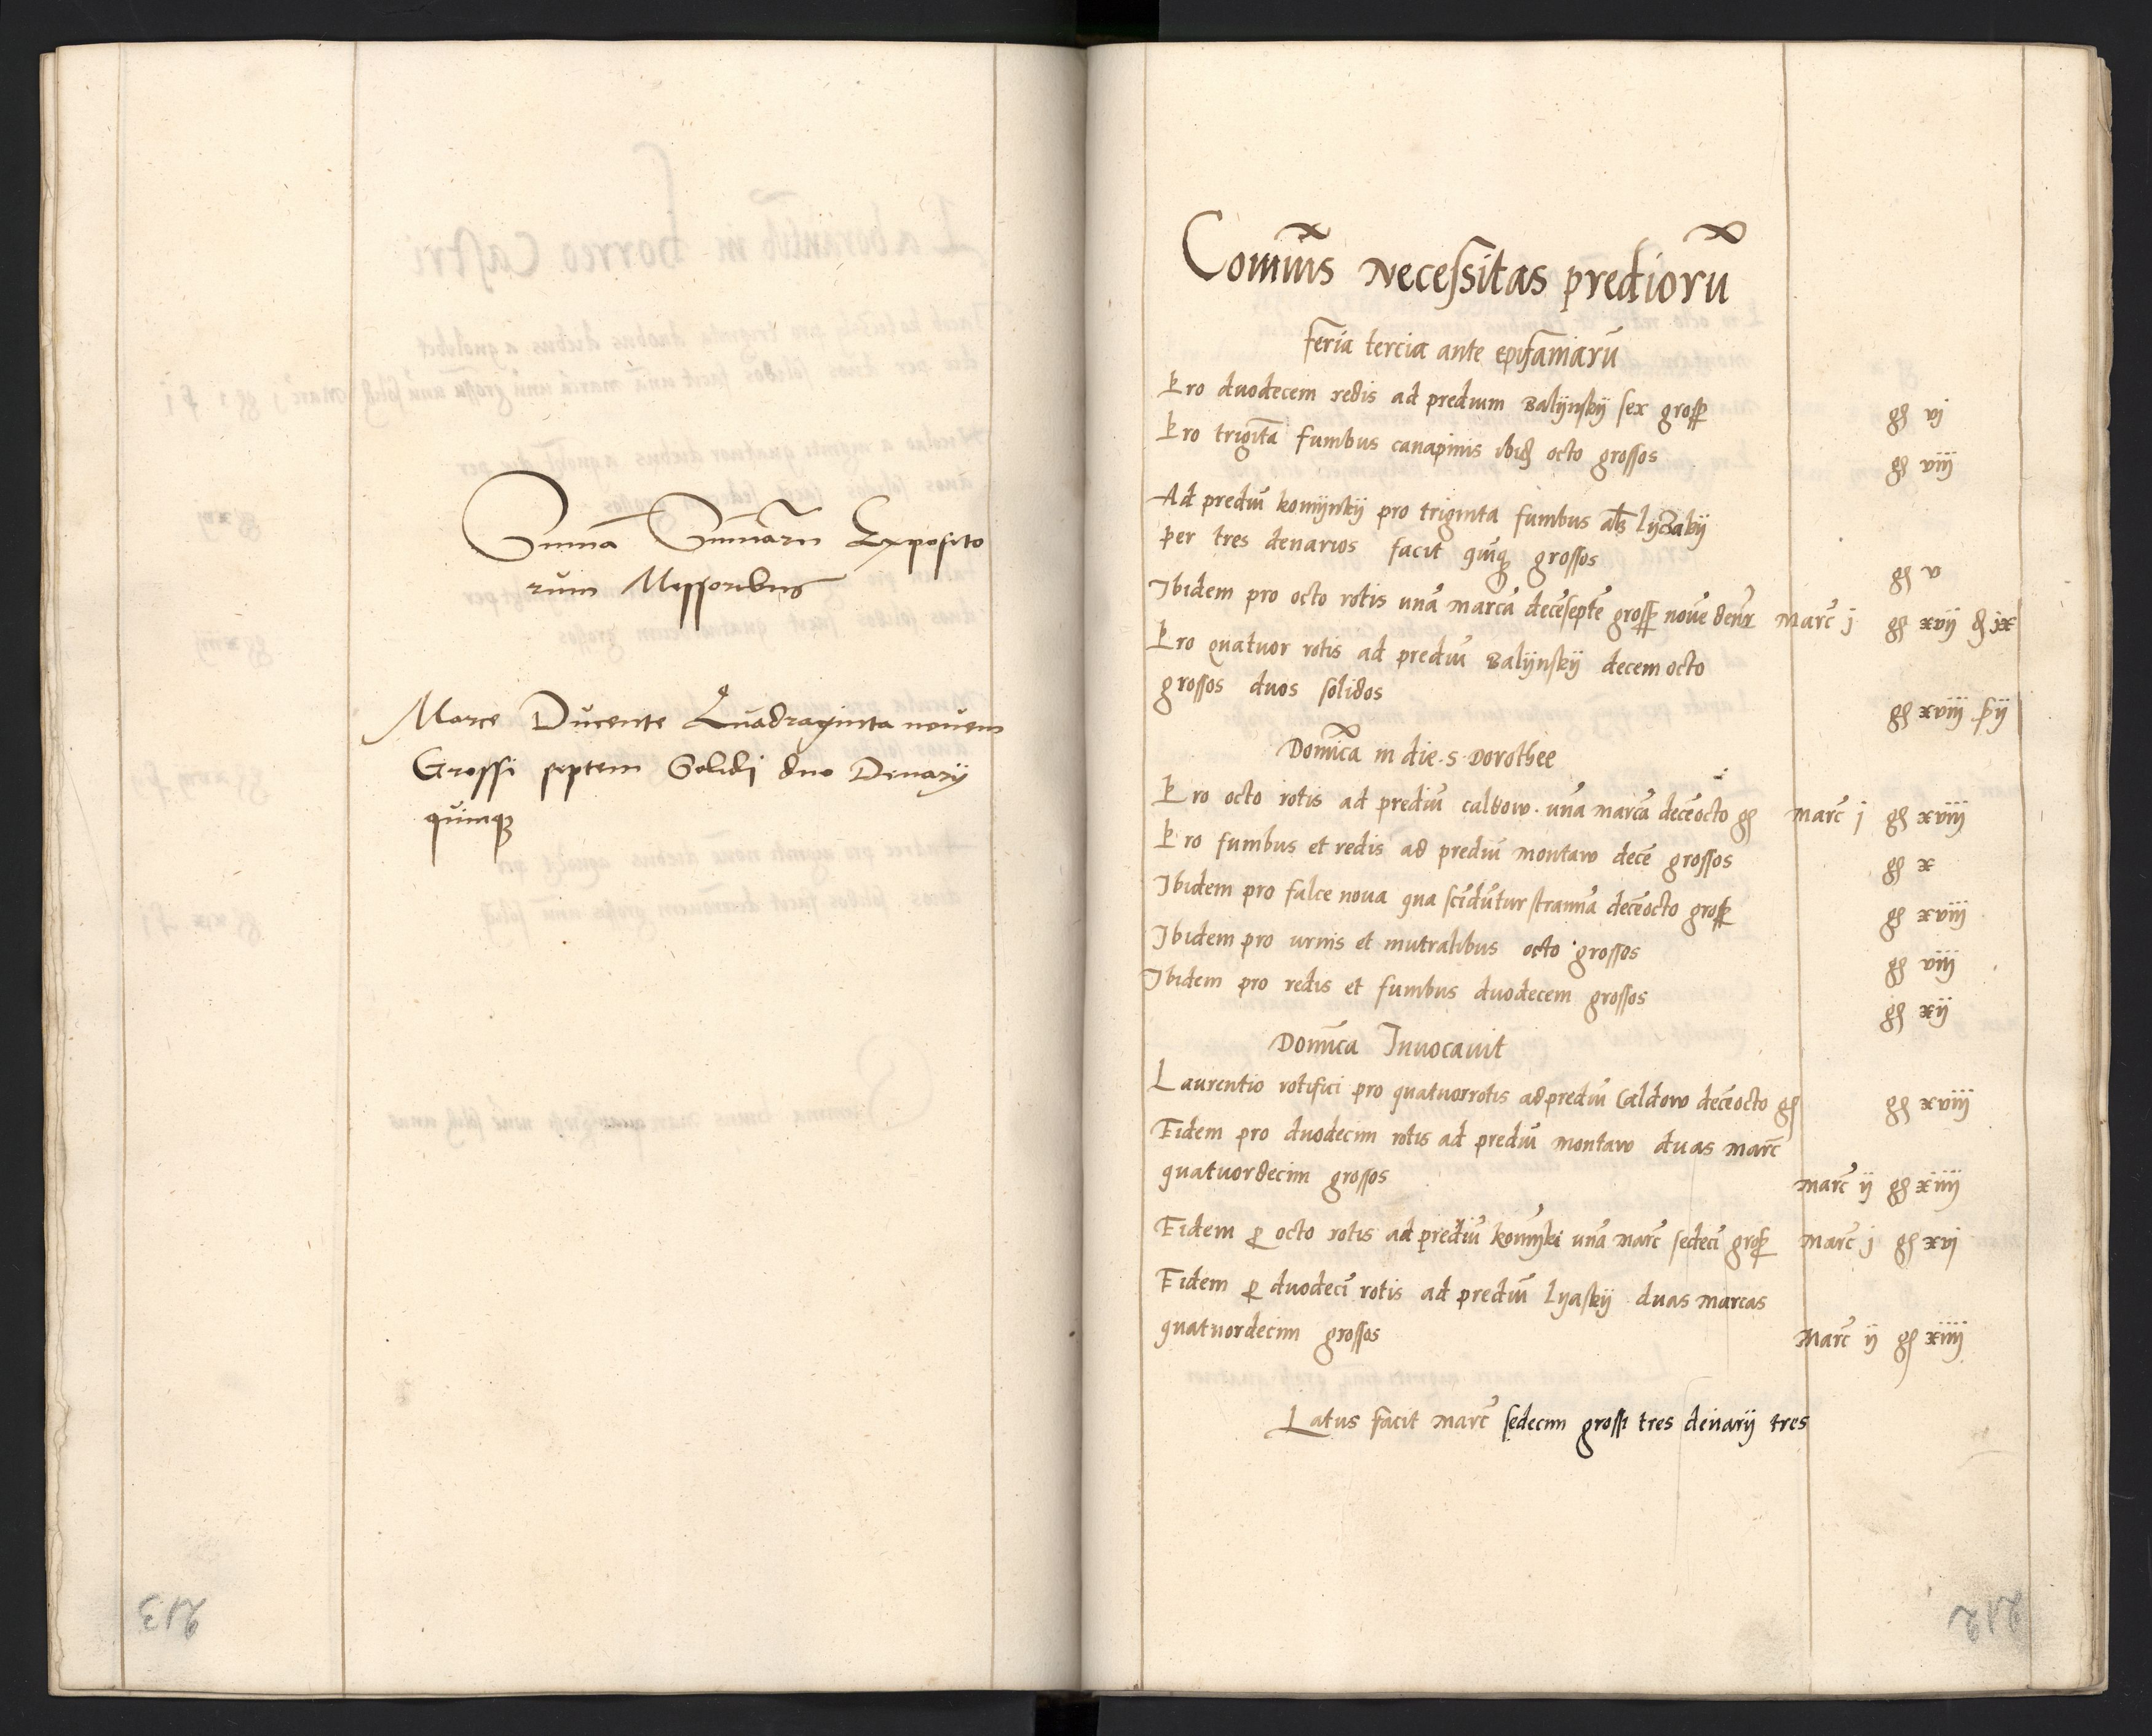 Summa Summaru Exposito
rum Messoribus
Marce Ducente Quadraginta novem
Grossi septem Solidi duo Denarij
quinq
213
Comunis Necessitas predioru
feria tercia ante epifaniaru
Pro duodecem redis ad predium Balijnskij sex gross gs vj
Pro trigita funibus canapinis ibid octo grossos gs viij
Ad prediu komijnskij pro triginta funibus als
per tres denarios facit quiq grossos gs v
Ibidem pro octo rotis una marca decesepte gross nove denr marc j gs xvij d ix
Pro quatuor rotis ad prediu Balijnskij decem octo
grossos duos solidos gs xviij s ij
Domica in die s Dorothee
Pro octo rotis ad prediu caldow una marca deceocto gs marc j gs xviij
Pro funibus et redis ad prediu montaw dece grossos gs x
Ibidem pro falce nova qua scidutur stramia deceocto gross gs xviij
Ibidem pro urnis et mutralibus octo grossos gs viij
Ibidem pro redis et funibus duodecem grossos gs xij
Domica Invocavit
Laurentio rotifici pro quatuor rotis ad prediu Caldow deceocto gs gs xviij
Eidem pro duodecim rotis ad prediu montaw duas marc
quatuordecim grossos marc ij gs xiiij
Eidem p octo rotis ad prediu una marc sedeci gross marc j gs xvj
Eidem p duodeci rotis ad prediu lyaskij duas marcas
quatuordecim grossos marc ij gs xiiij
Latus facit marc sedecim grossi tres denarij tres
212